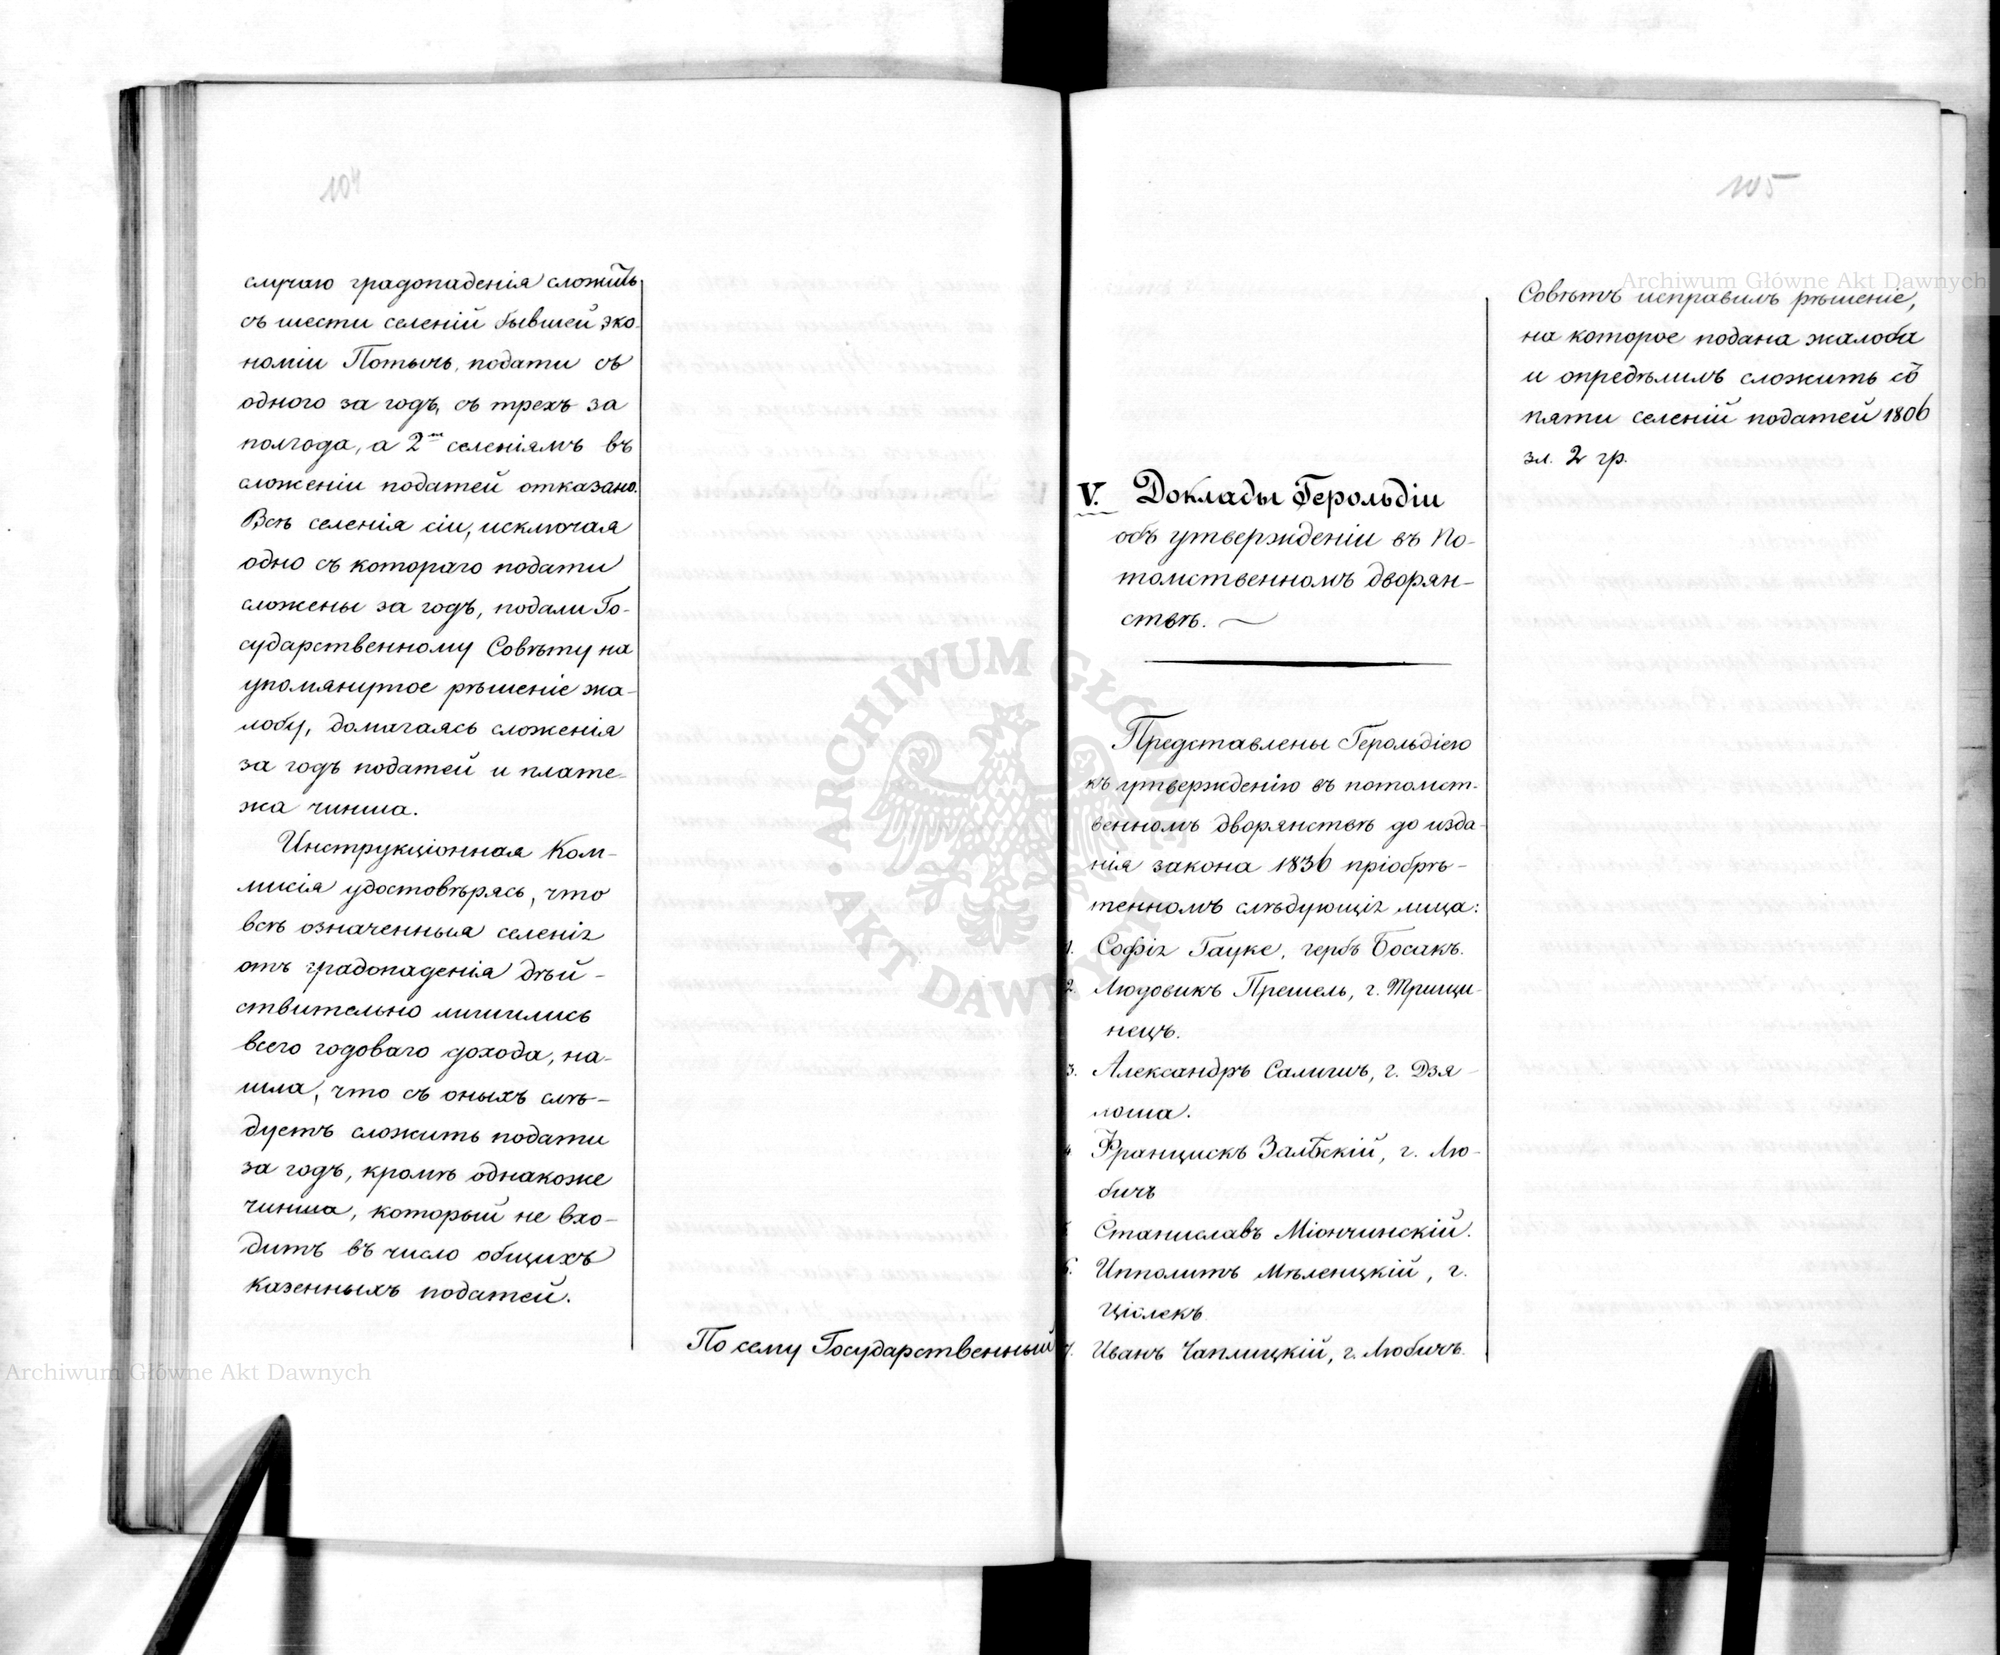 104
случаю градопаденія сложить
съ шести селеній бывшей эко-
номіи Потычь, подати съ
одного за годъ, съ трехъ за
полгода, а 2мъ селеніямъ въ
сложеніи податей отказано.
Всѣ селенія сіи, исключая
одно съ котораго подати
сложены за годъ, подали Го-
сударственному Совѣту на
упомянутое рѣшеніе жа-
лобу, домагаясь сложенія
за годъ податей и плате-
жа чинша.
Инструкціонная Ком-
мисія удостовѣрясь, что
всѣ означенныя селенія
отъ градопаденія дѣй-
ствительно лишились
всего годоваго дохода, на-
шла, что съ оныхъ слѣ-
дуетъ сложить подати
за годъ, кромѣ однакоже
чинша, который не вхо-
дитъ въ число общихъ
казенныхъ податей.
По сему Государственный
105
Совѣтъ исправилъ рѣшеніе,
на которое подана жалоба
и опредѣлилъ сложить съ
пяти селеній податей 1806
зл. 2 гр.
V. Доклады Герольдіи
объ утвержденіи въ по-
томственномъ дворян-
ствѣ.
Представлены Герольдіею
къ утвержденію въ потомст-
венномъ дворянствѣ до изда-
нія закона 1836 пріобрѣ-
тенномъ слѣдующія лица:
1. Софія Гауке, гербъ Босакъ.
2. Людовикъ Прешель, г. Трищи-
нецъ.
3. Александръ Салигшъ, г. Дзя-
лоша.
4. Францискъ Залѣскій, г. Лю-
бичъ
5. Станиславъ Міончинскій.
6. Ипполитъ Мѣленцкій, г.
Ціолекъ.
7. Иванъ Чаплицкій, г. Любичъ.
Archiwum Główne Akt Dawnych
Archiwum Główne Akt Dawnych
ARCHIWUM GŁÓWNE AKT DAWNYCH